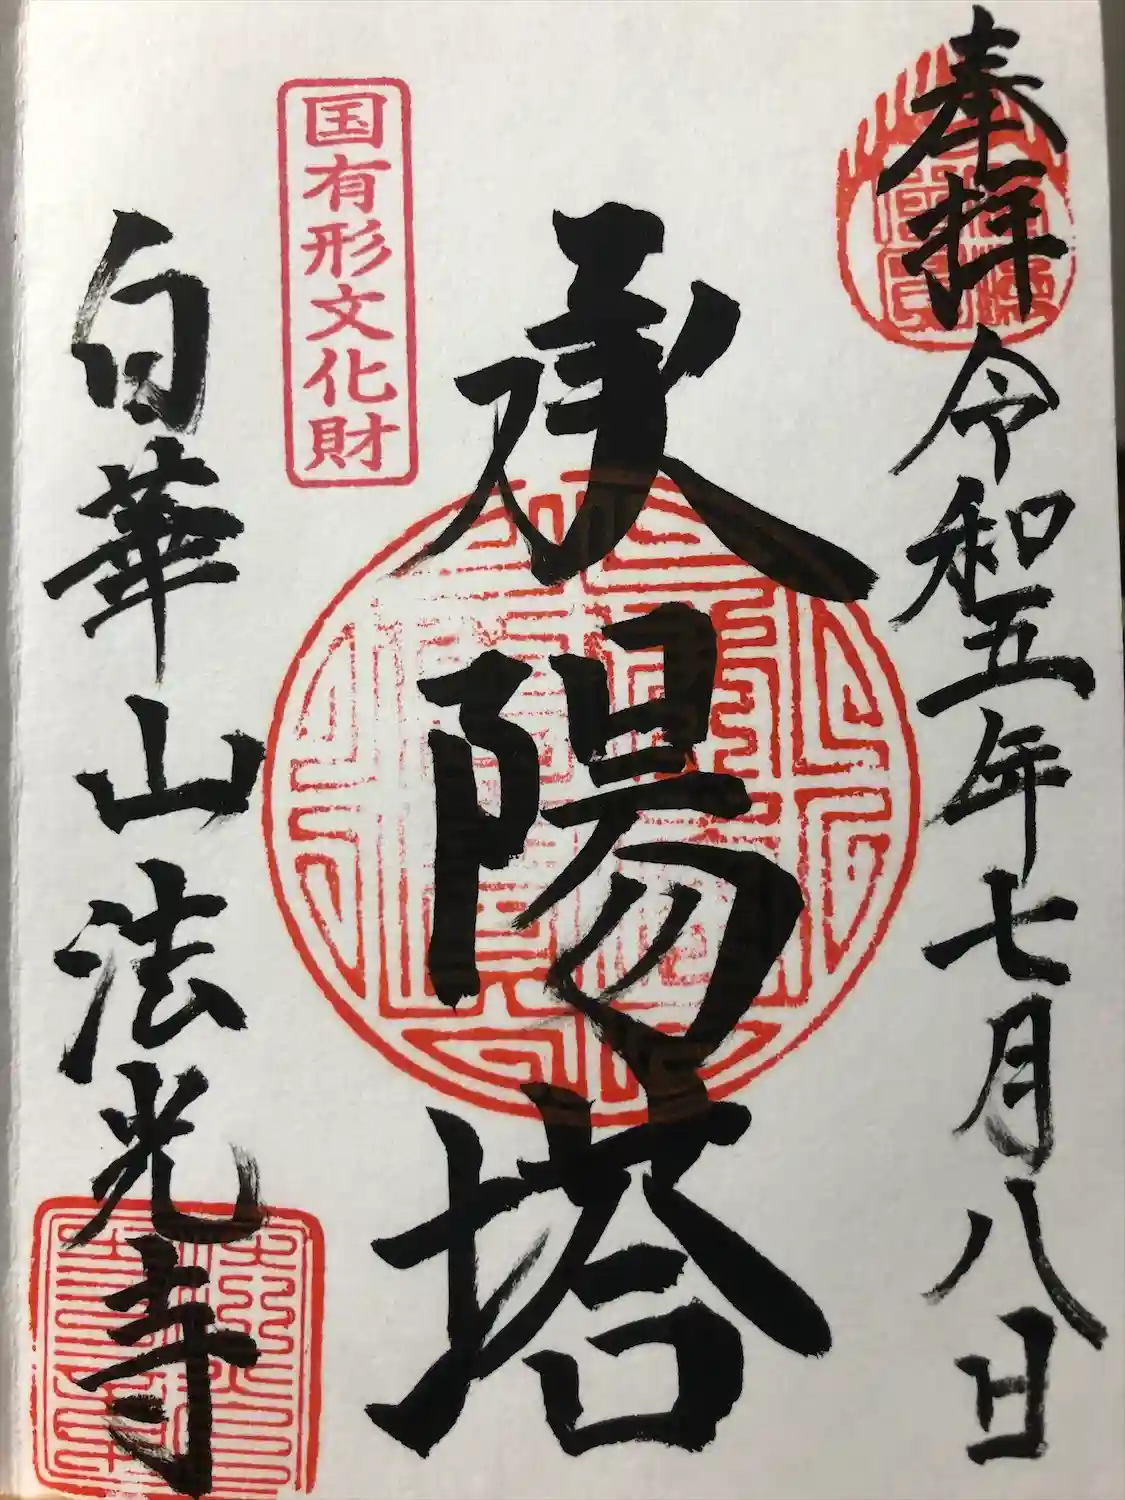 奉拝 令和五年七月八日
承陽塔
国有形文化財
白華山法光寺